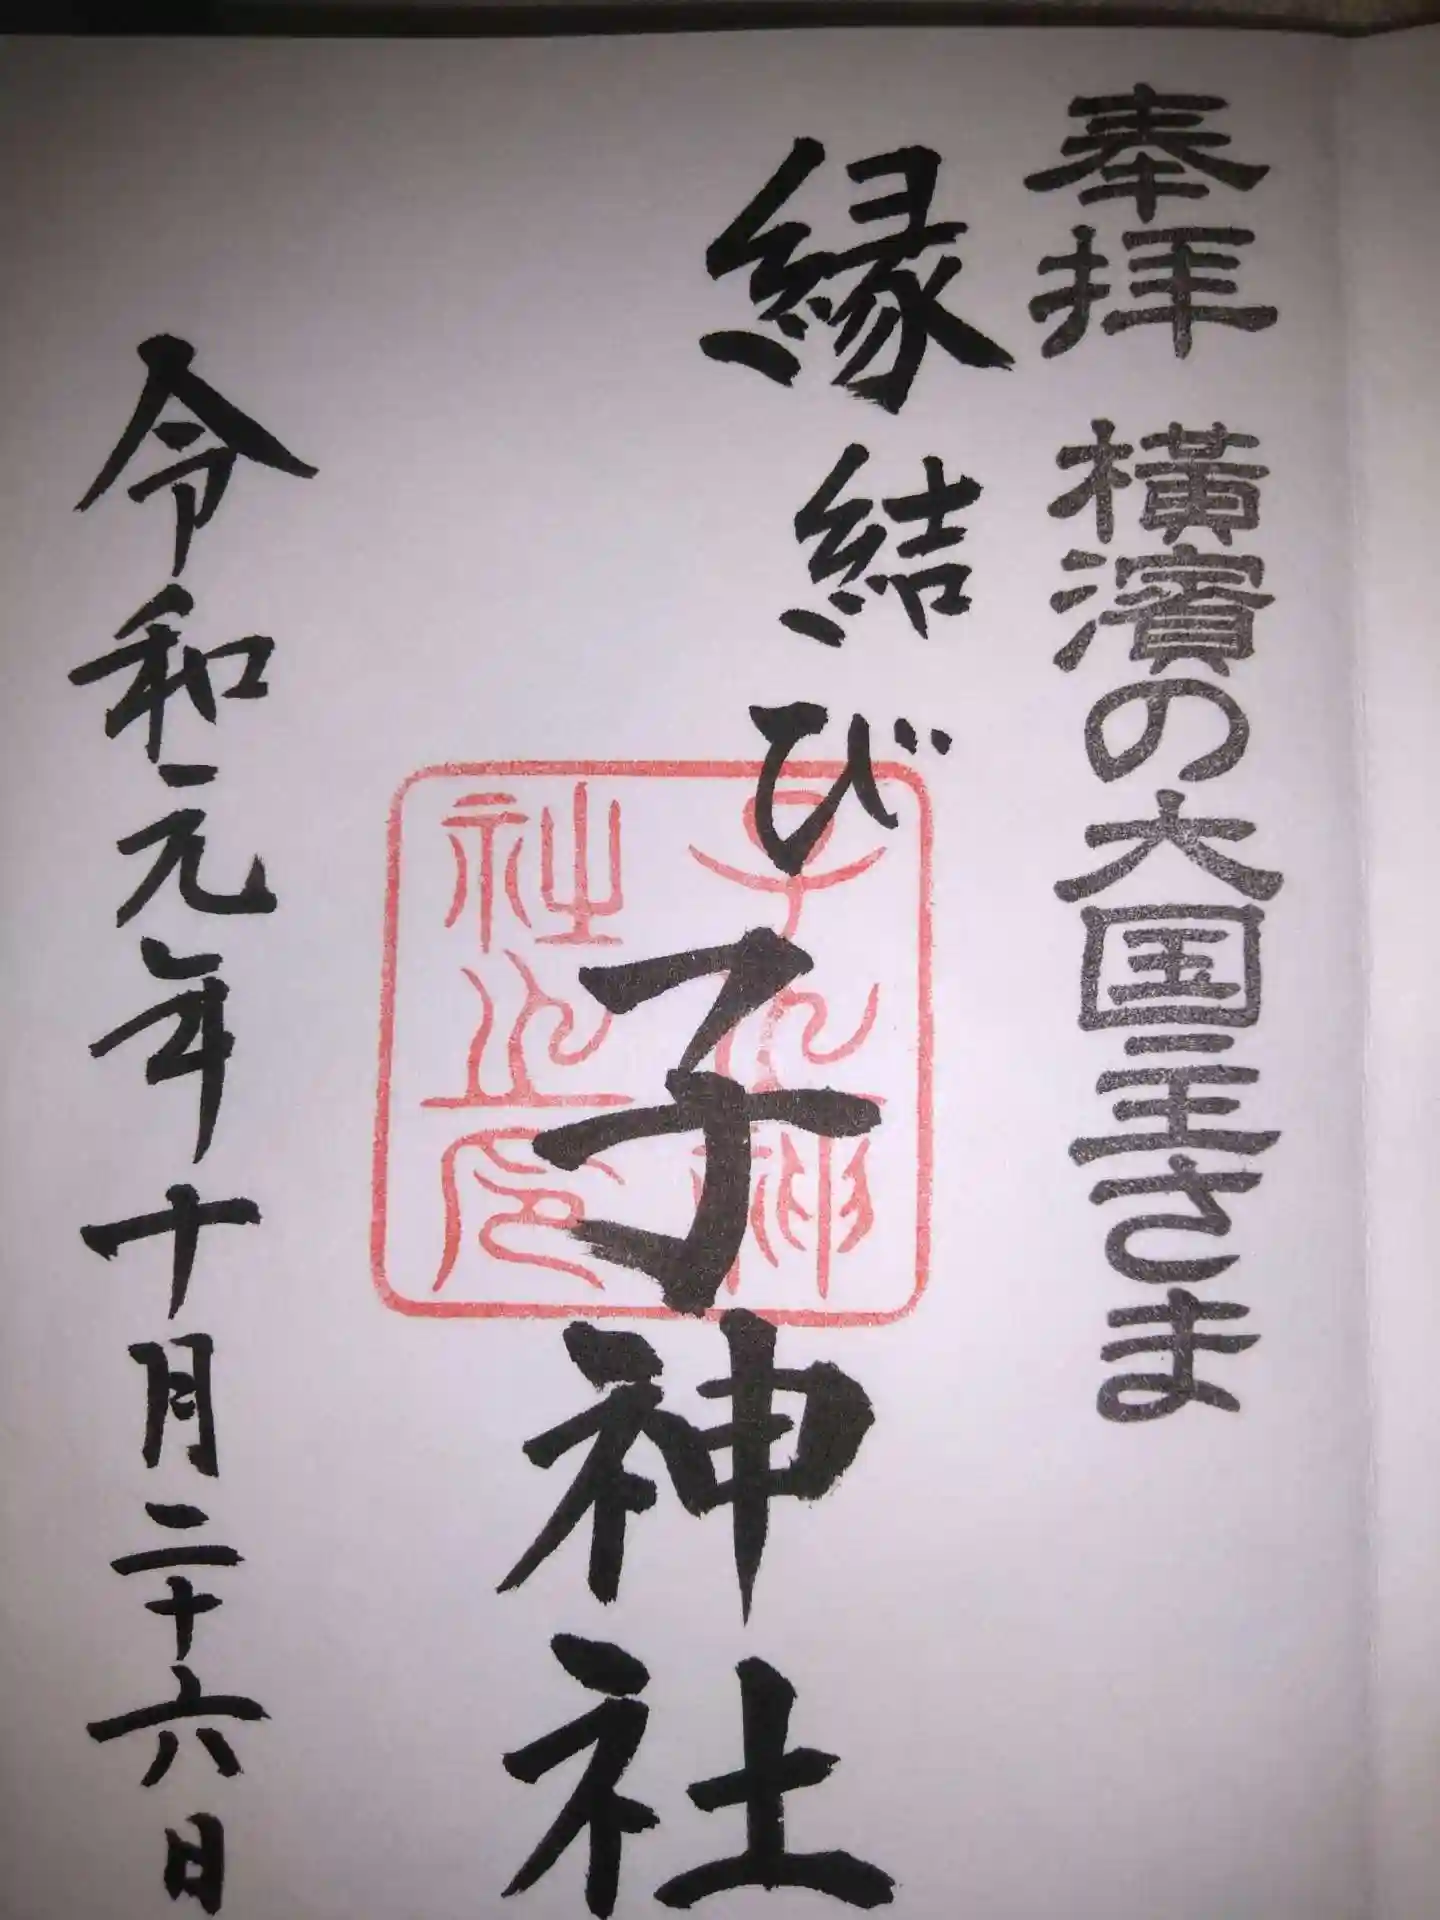 奉拝 横濱の大国主さま
縁結び
子神社
子之神
社之印
令和元年十月二十六日